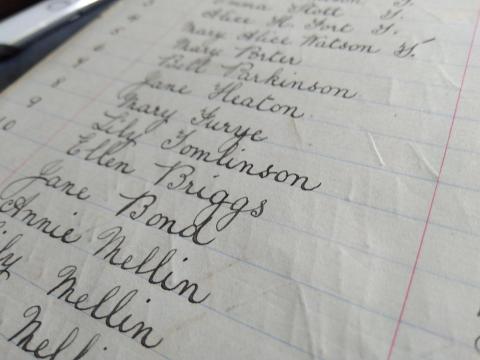 3 Emma Stott T.
4 Alice H. Fort T.
5 Mary Alice Watson T.
6 Mary Porter
7 Bell Parkinson
8 Jane Heaton
9 Mary Turye
10 Lily Tomlinson
Ellen Briggs
Jane Bond
Annie Mellin
Mellin